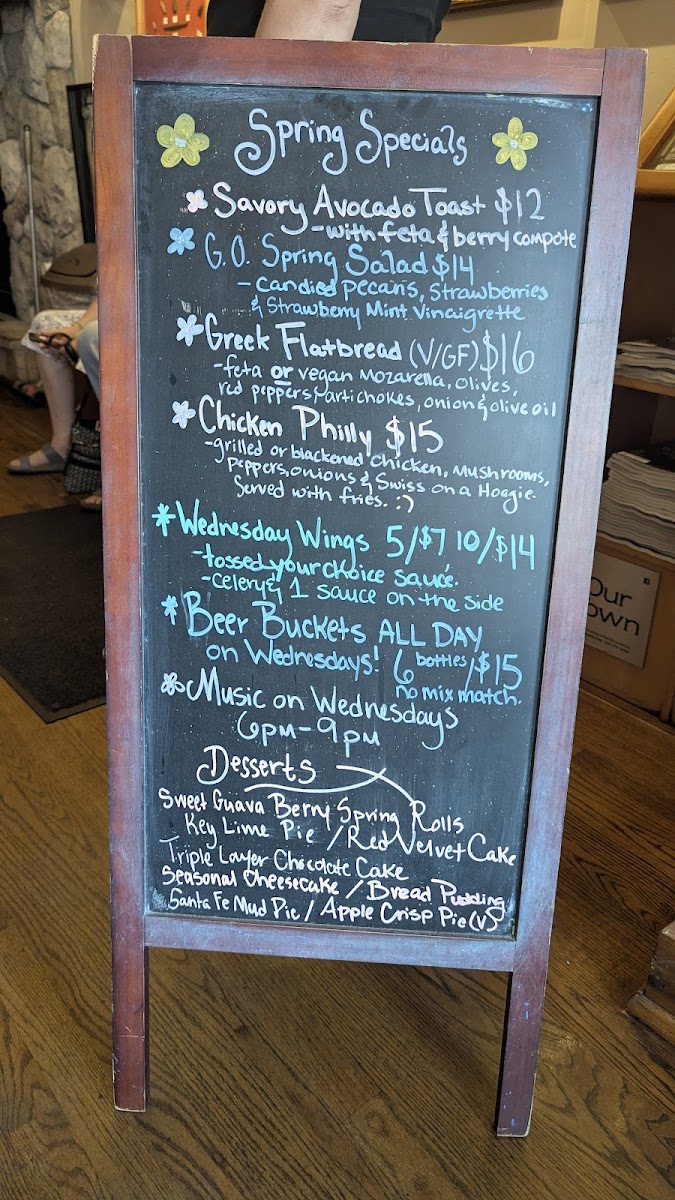 Spring Specials
Savory Avocado Toast $12
-with feta & berry compote
G.O. Spring Salad $14
- candied pecans, strawberries
& Strawberry Mint Vinaigrette
Greek Flatbread (V/GF) $16
-feta or vegan mozarella, olives,
red peppers, artichokes, onion & olive oil
Chicken Philly $15
-grilled or blackened chicken, mushrooms,
Peppers, onions & Swiss on a Hoagie.
Served with fries. :)
Wednesday Wings 5/$7 10/$14
-tossed your choice sauce.
-celery & 1 sauce on the side
Beer Buckets ALL DAY
on Wednesdays! 6 bottles/$15
no mix match.
Music on Wednesdays
6pm-9pm
Desserts
Sweet Guava Berry Spring Rolls
Key Lime Pie / Red Velvet Cake
Triple Layer Chocolate Cake
Seasonal Cheesecake / Bread Pudding
Santa Fe Mud Pie / Apple Crisp Pie (V)
Our
own